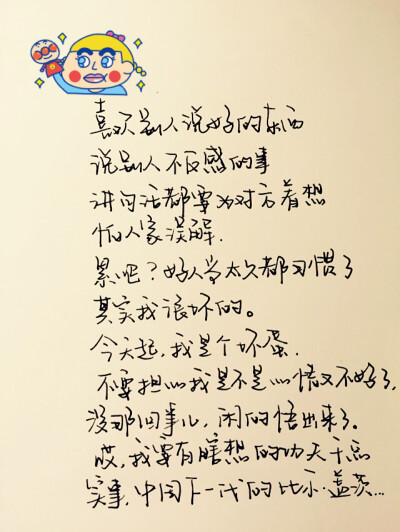 喜欢别人说好的东西
说别人不反感的事
讲句话都要为对方着想
怕人家误解.
累吧？好人当太久都习惯了
其实我很坏的。
今天起,我是个坏蛋.
不要担心我是不是心情又不好了,
没那回事儿,闲的悟出来了.
哎,我要有瞎想的功夫干点
实事,中国下一代的比尔·盖茨...